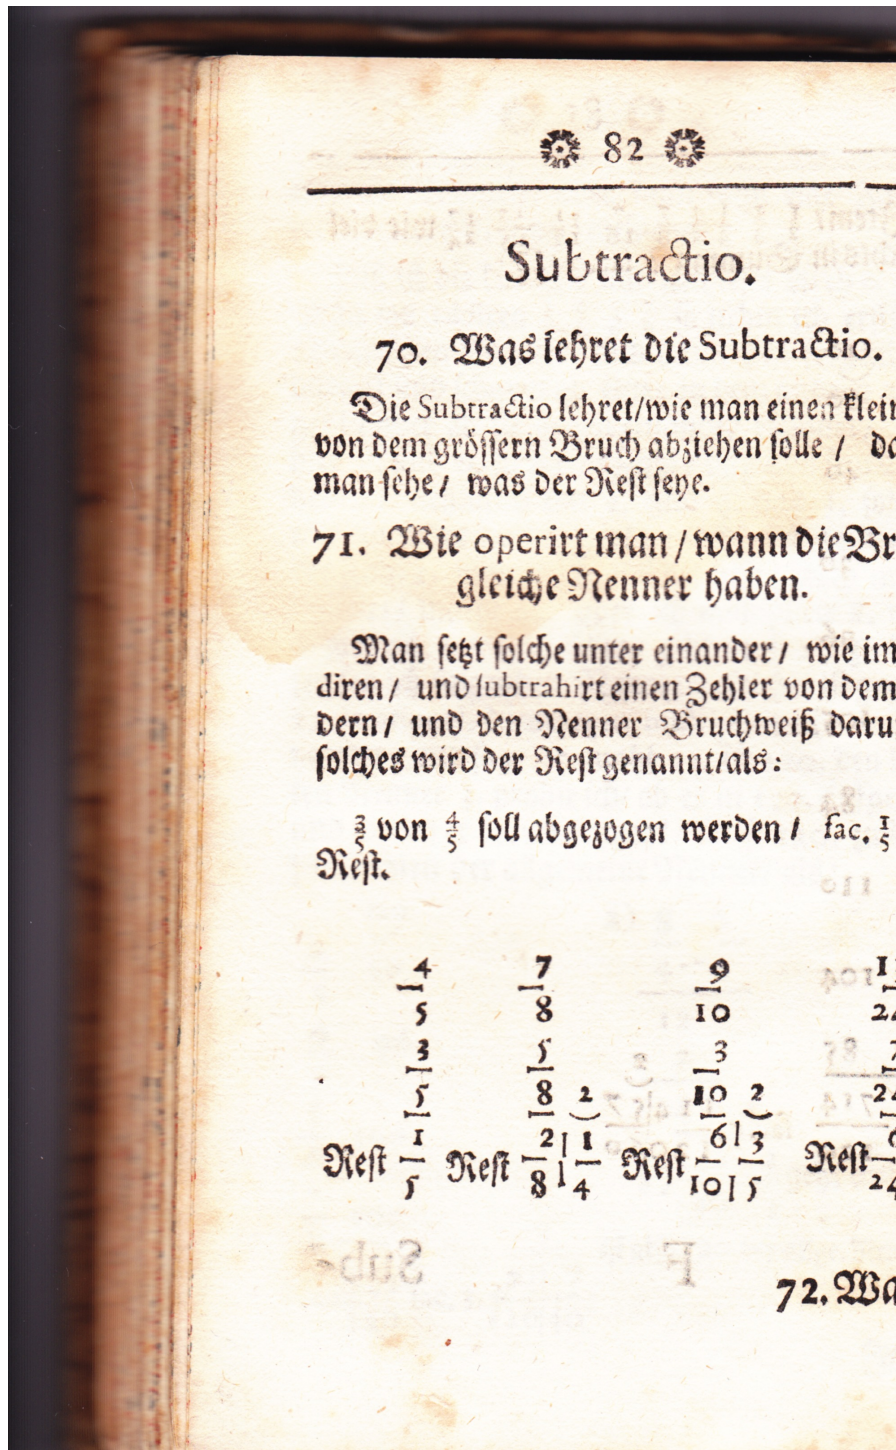 82
Subtractio.
70. Was lehret die Subtractio.
Die Subtractio lehret/wie man einen klein
von dem grössern Bruch abziehen solle / da
man sehe/ was der Rest seye.
71. Wie operirt man/wann die Br
gleiche Nenner haben.
Man setzt solche unter einander/ wie im
diren/ und subtrahirt einen Zehler von dem
dern/ und den Nenner Bruchweiß daru
solches wird der Rest genannt/als:
3/5 von 4/5 soll abgezogen werden / fac. 1/5
Rest.
4 7 9 1
5 8 10 24
3 5 3 7
5 8 2 10 2 24
Rest 1/5 Rest 2/8 | 1/4 Rest 6/10 | 3/5 Rest 6/24
72. Wa